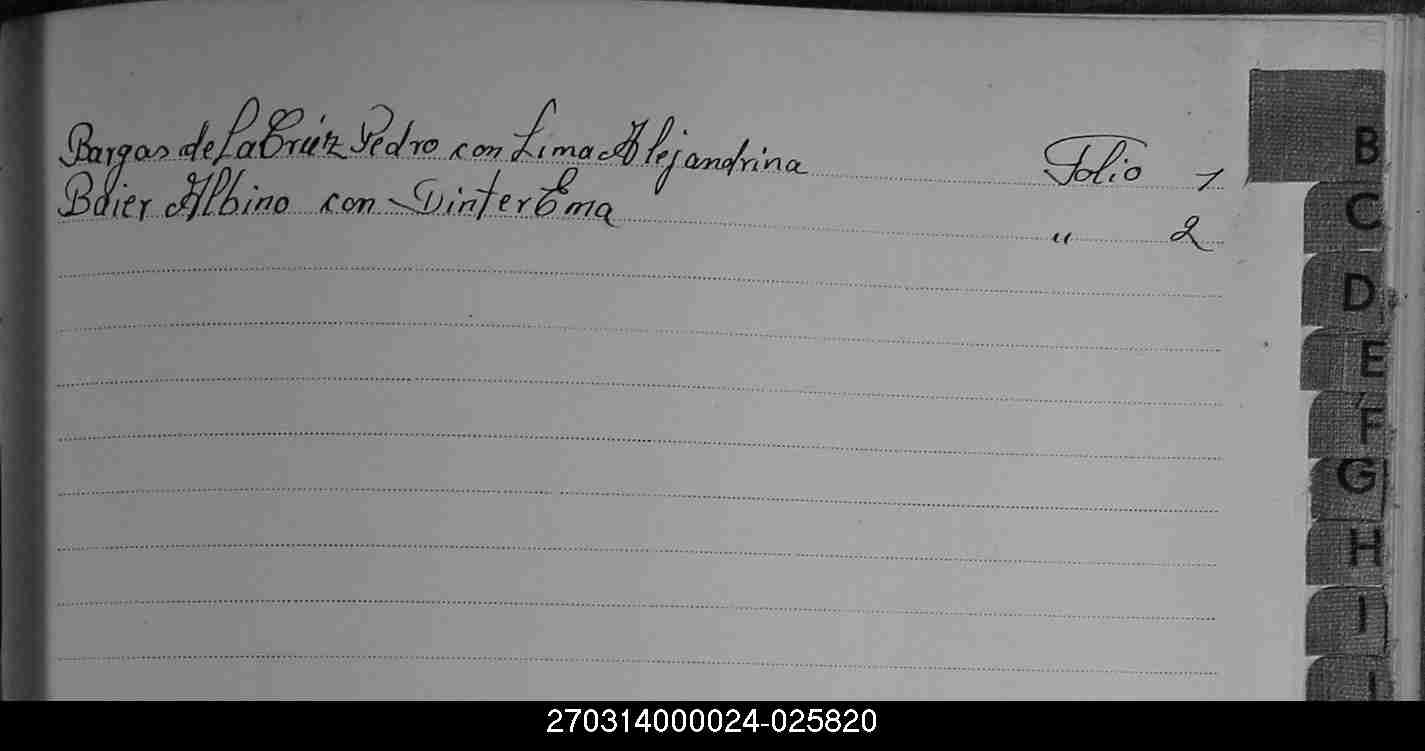 Bargas de La Crúz Pedro con Lima Alejandrina Folio 1
Baier Albino con Dinter Ema " 2
B
C
D
E
F
G
H
I
270314000024-025820